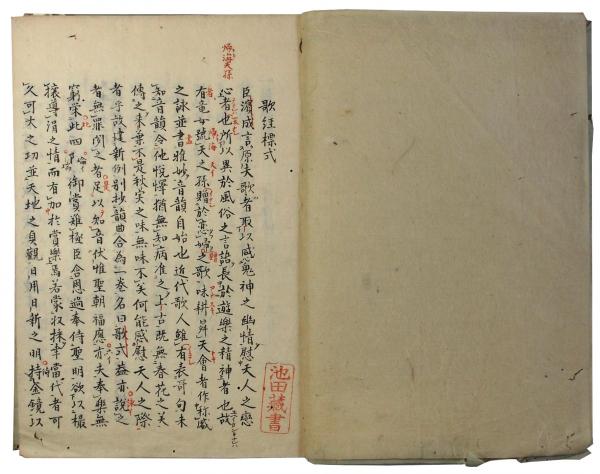 歌经標式
臣濱成言原夫歌者取以感鬼神之幽情慰天人之戀
心者也所以異於風俗之言語長於遊樂之精神者也故
有竜女號天之孫贈於恋婦之歌味耕昇天會者作称威
之詠並書雅妙音韻自始也近代歌人雖有表哥句未
知音韻令他悦懌猶無知病准之上古既無春花之美
傳之末葉不是秋実之味無味不美何能感慰天人之際
者乎故建新例別抄韻曲合為一巻名曰歌式蓋亦説之
者無罪聞之者足以知音伏惟聖朝福應亦夫奉樂無
窮榮此四御賞雖極臣含恩過奉侍聖明欲以撮
壤導涓之情而有加於賞樂焉若蒙收採幸當代者可
久可大之功並天地之貞觀日用日新之明持金鏡以
池田藏書